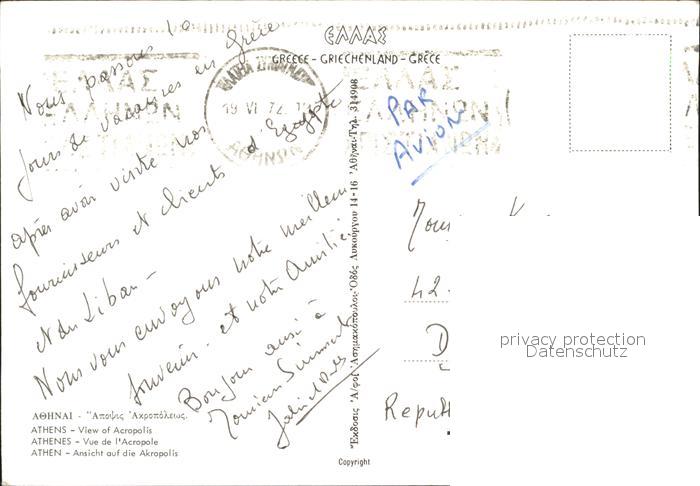 ΕΛΛΑΣ
GREECE - GRIECHENLAND - GRÈCE
ΑΘΗΝΑΙ
19 VI 72
PAR
AVION
Nous passons 10
jours de vacances en Grèce
après avoir visité nos
fournisseurs et clients d'Egypte
et du Liban -
Nous vous envoyons notre meilleur
souvenir et notre amitié.
Bonjour aussi à
42
D
Repu
Ἔκδοσις Ἀ/φοί Ἀσημακόπουλοι Ὁδός Λυκούργου 14-16 Ἀθῆναι Τηλ. 314908
ΑΘΗΝΑΙ - Ἄποψις Ἀκροπόλεως.
ATHENS - View of Acropolis
ATHENES - Vue de l'Acropole
ATHEN - Ansicht auf die Akropolis
Copyright
privacy protection
Datenschutz